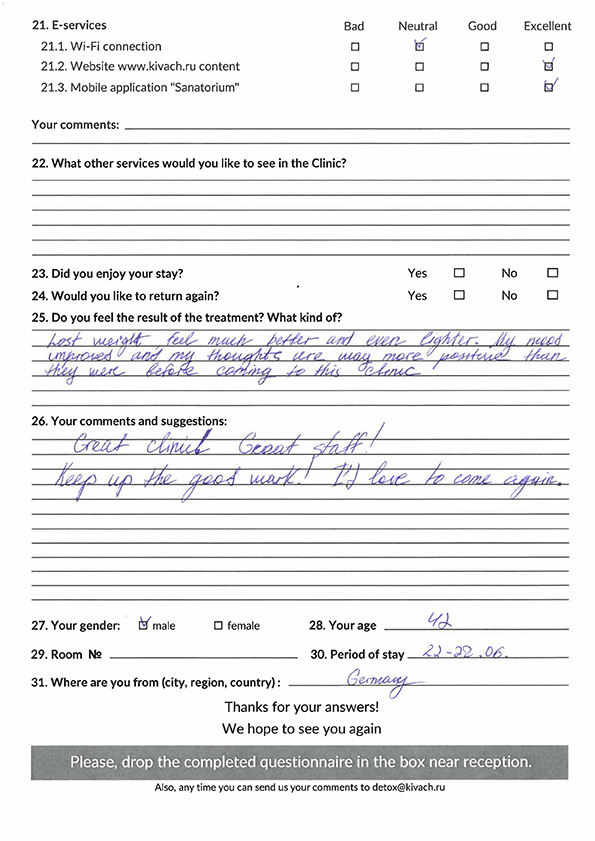 21. E-services Bad Neutral Good Excellent
21.1. Wi-Fi connection
21.2. Website www.kivach.ru content
21.3. Mobile application "Sanatorium"
Your comments:
22. What other services would you like to see in the Clinic?
23. Did you enjoy your stay? Yes No
24. Would you like to return again? Yes No
25. Do you feel the result of the treatment? What kind of?
Lost weight feel much better and even lighter. My mood
improved and my thoughts are way more positive than
they were before coming to this clinic
26. Your comments and suggestions:
Great clinic Great staff!
Keep up the good work! I'd love to come again.
27. Your gender: male female 28. Your age 42
29. Room № 30. Period of stay 22-28.06.
31. Where are you from (city, region, country) : Germany
Thanks for your answers!
We hope to see you again
Please, drop the completed questionnaire in the box near reception.
Also, any time you can send us your comments to detox@kivach.ru